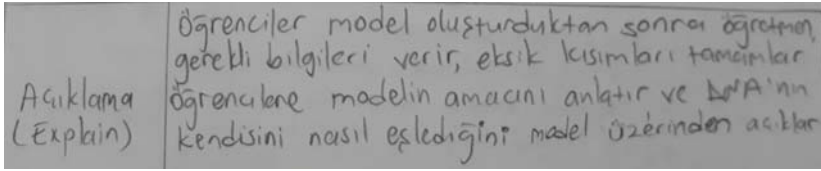 Açıklama
(Explain)
Öğrenciler model oluşturduktan sonra öğretmen,
gerekli bilgileri verir, eksik kısımları tamamlar
öğrencilere modelin amacını anlatır ve DNA'nın
kendisini nasıl eşlediğini model üzerinden açıklar